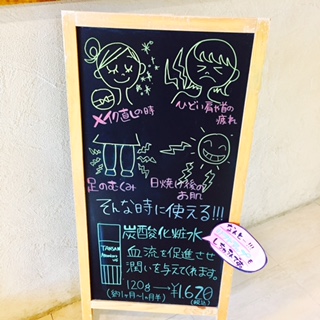 メイク直しの時
ひどい肩や首の
疲れ
足のむくみ
日焼け後の
お肌
そんな時に使える!!!
TANSAN
炭酸化粧水
血流を促進させ
潤いを与えてくれます。
120g→¥1620
(約1ヶ月〜1ヶ月半)
(税込)